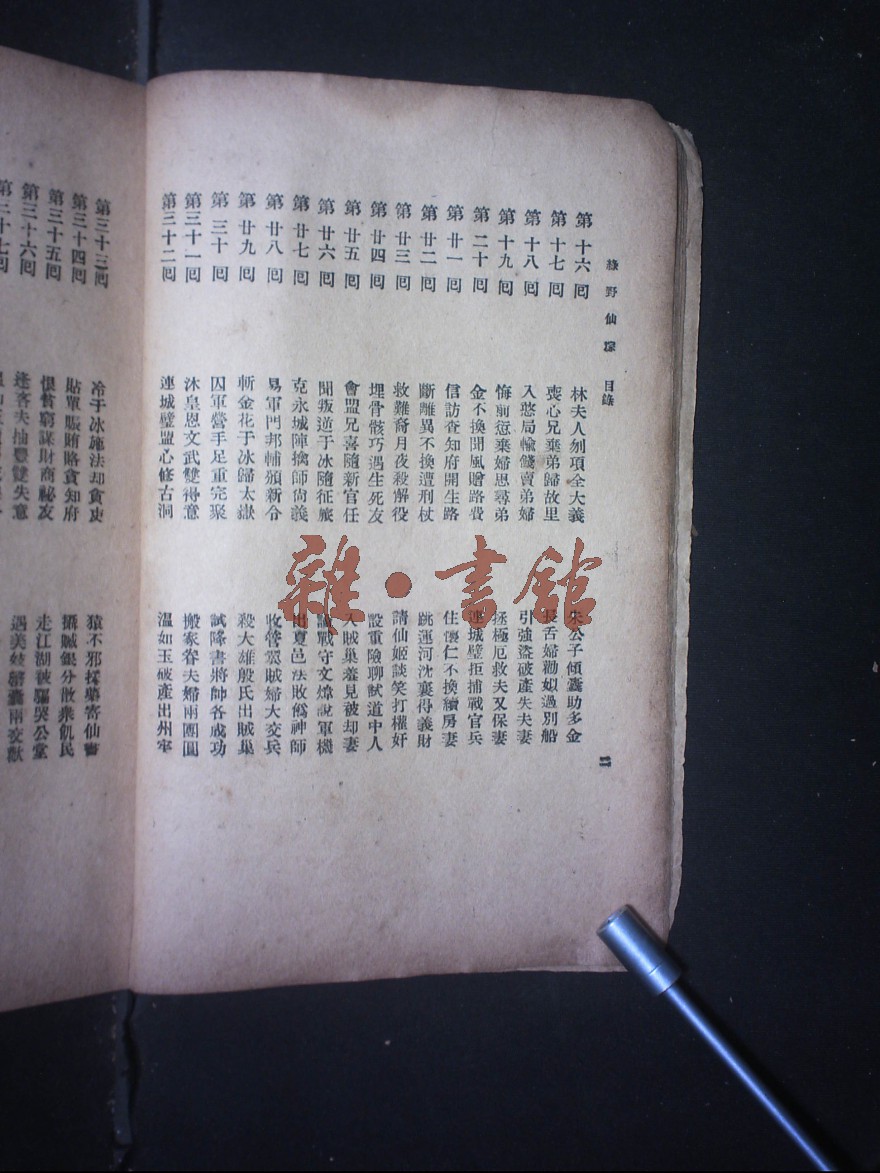 綠野仙踪 目錄 二
第十六囘 林夫人刎項全大義 朱公子傾囊助多金
第十七囘 喪心兄棄弟歸故里 長舌婦勸姒過別船
第十八囘 入憨局輸錢賣弟婦 引強盜破產失夫妻
第十九囘 悔前愆棄婦思尋弟 拯極厄救夫又保妻
第二十囘 金不換聞風贈路費 連城璧拒捕戰官兵
第廿一囘 信訪查知府開生路 住懷仁不換續房妻
第廿二囘 斷離異不換遭刑杖 跳運河沈襄得義財
第廿三囘 救難裔月夜殺解役 請仙姬談笑打權奸
第廿四囘 埋骨骸巧遇生死友 設重險聊試道中人
第廿五囘 會盟兄喜隨新官任 入賊巢羞見被却妻
第廿六囘 聞叛逆于冰隨征旅 論戰守文煒說軍機
第廿七囘 克永城陣擒師尙義 出夏邑法敗僞神師
第廿八囘 易軍門邦輔頒新令 收管翼賊婦大交兵
第廿九囘 斬金花于冰歸太嶽 殺大雄殷氏出賊巢
第三十囘 囚軍營手足重完聚 試降書將帥各成功
第三十一囘 沐皇恩文武雙得意 搬家眷夫婦兩團圓
第三十二囘 連城璧盟心修古洞 溫如玉破產出州牢
第三十三囘 冷于冰施法却貪吏 猿不邪採藥寄仙書
第三十四囘 貼單賬賄賂貪知府 攝贓銀分散衆飢民
第三十五囘 恨貧窮謀財商秘友 走江湖被騙哭公堂
第三十六囘 逢吝夫抽豐雙失意 遇美妓罄囊兩交歡
第三十七囘
雜·書館